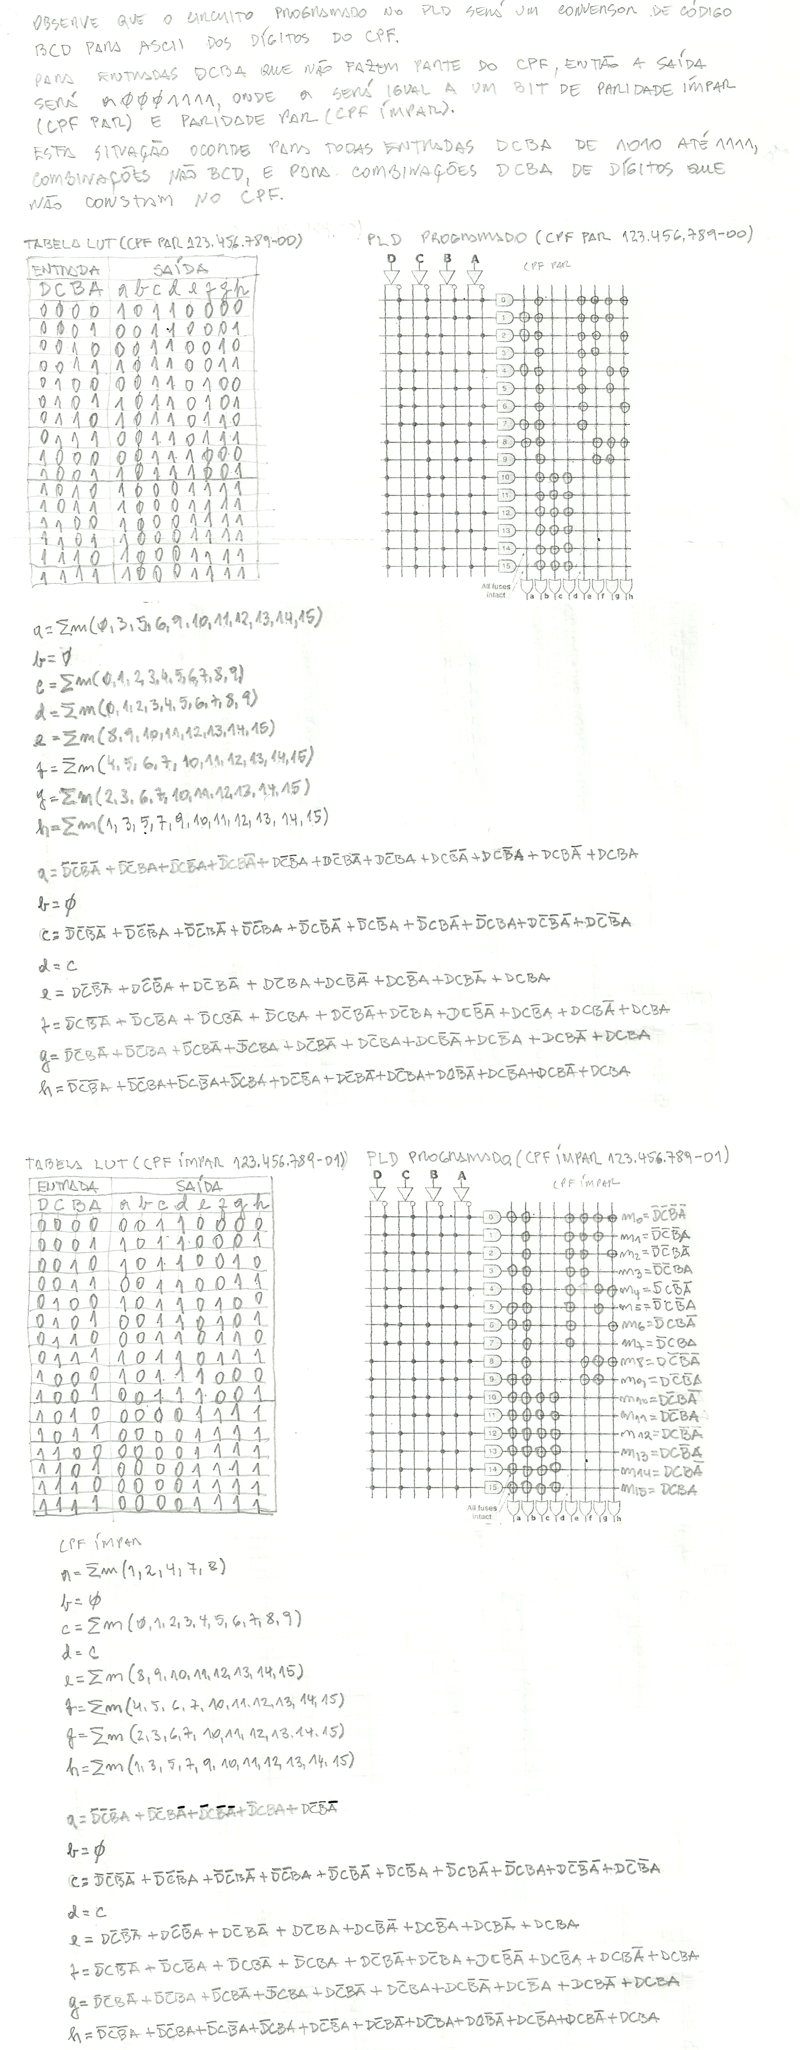 OBSERVE QUE O CIRCUITO PROGRAMADO NO PLD SERÁ UM CONVERSOR DE CÓDIGO
BCD PARA ASCII DOS DÍGITOS DO CPF.
PARA ENTRADAS DCBA QUE NÃO FAZEM PARTE DO CPF, ENTÃO A SAÍDA
SERÁ aØØØ1111, ONDE a SERÁ IGUAL A UM BIT DE PARIDADE ÍMPAR
(CPF PAR) E PARIDADE PAR (CPF ÍMPAR).
ESTA SITUAÇÃO OCORRE PARA TODAS ENTRADAS DCBA DE 1010 ATÉ 1111,
COMBINAÇÕES NÃO BCD, E PARA COMBINAÇÕES DCBA DE DÍGITOS QUE
NÃO CONSTAM NO CPF.
TABELA LUT (CPF PAR 123.456.789-00)
ENTRADA SAÍDA
D C B A a b c d e f g h
0 0 0 0 1 0 1 1 0 0 0 0
0 0 0 1 0 0 1 1 0 0 0 1
0 0 1 0 0 0 1 1 0 0 1 0
0 0 1 1 1 0 1 1 0 0 1 1
0 1 0 0 0 0 1 1 0 1 0 0
0 1 0 1 1 0 1 1 0 1 0 1
0 1 1 0 1 0 1 1 0 1 1 0
0 1 1 1 0 0 1 1 0 1 1 1
1 0 0 0 0 0 1 1 1 0 0 0
1 0 0 1 1 0 1 1 1 0 0 1
1 0 1 0 1 0 0 0 1 1 1 1
1 0 1 1 1 0 0 0 1 1 1 1
1 1 0 0 1 0 0 0 1 1 1 1
1 1 0 1 1 0 0 0 1 1 1 1
1 1 1 0 1 0 0 0 1 1 1 1
1 1 1 1 1 0 0 0 1 1 1 1
PLD PROGRAMADO (CPF PAR 123.456.789-00)
D C B A
CPF PAR
0
1
2
3
4
5
6
7
8
9
10
11
12
13
14
15
All fuses
intact
a b c d e f g h
a = Σm(Ø,3,5,6,9,10,11,12,13,14,15)
b = Ø
c = Σm(0,1,2,3,4,5,6,7,8,9)
d = Σm(0,1,2,3,4,5,6,7,8,9)
e = Σm(8,9,10,11,12,13,14,15)
f = Σm(4,5,6,7,10,11,12,13,14,15)
g = Σm(2,3,6,7,10,11,12,13,14,15)
h = Σm(1,3,5,7,9,10,11,12,13,14,15)
a = D̅C̅B̅A̅ + D̅C̅BA + D̅CB̅A + D̅CBA̅ + DC̅B̅A + DC̅BA̅ + DC̅BA + DCB̅A̅ + DCB̅A + DCBA̅ + DCBA
b = Ø
c = D̅C̅B̅A̅ + D̅C̅B̅A + D̅C̅BA̅ + D̅C̅BA + D̅CB̅A̅ + D̅CB̅A + D̅CBA̅ + D̅CBA + DC̅B̅A̅ + DC̅B̅A
d = c
e = DC̅B̅A̅ + DC̅B̅A + DC̅BA̅ + DC̅BA + DCB̅A̅ + DCB̅A + DCBA̅ + DCBA
f = D̅CB̅A̅ + D̅CB̅A + D̅CBA̅ + D̅CBA + DC̅BA̅ + DC̅BA + DCB̅A̅ + DCB̅A + DCBA̅ + DCBA
g = D̅C̅BA̅ + D̅C̅BA + D̅CBA̅ + D̅CBA + DC̅BA̅ + DC̅BA + DCB̅A̅ + DCB̅A + DCBA̅ + DCBA
h = D̅C̅B̅A + D̅C̅BA + D̅CB̅A + D̅CBA + DC̅B̅A + DC̅BA̅ + DC̅BA + DCB̅A̅ + DCB̅A + DCBA̅ + DCBA
TABELA LUT (CPF ÍMPAR 123.456.789-01)
ENTRADA SAÍDA
D C B A a b c d e f g h
0 0 0 0 0 0 1 1 0 0 0 0
0 0 0 1 1 0 1 1 0 0 0 1
0 0 1 0 1 0 1 1 0 0 1 0
0 0 1 1 0 0 1 1 0 0 1 1
0 1 0 0 1 0 1 1 0 1 0 0
0 1 0 1 0 0 1 1 0 1 0 1
0 1 1 0 0 0 1 1 0 1 1 0
0 1 1 1 1 0 1 1 0 1 1 1
1 0 0 0 1 0 1 1 1 0 0 0
1 0 0 1 0 0 1 1 1 0 0 1
1 0 1 0 0 0 0 0 1 1 1 1
1 0 1 1 0 0 0 0 1 1 1 1
1 1 0 0 0 0 0 0 1 1 1 1
1 1 0 1 0 0 0 0 1 1 1 1
1 1 1 0 0 0 0 0 1 1 1 1
1 1 1 1 0 0 0 0 1 1 1 1
PLD PROGRAMADO (CPF ÍMPAR 123.456.789-01)
D C B A
CPF ÍMPAR
0 m0 = D̅C̅B̅A̅
1 m1 = D̅C̅B̅A
2 m2 = D̅C̅BA̅
3 m3 = D̅C̅BA
4 m4 = D̅CB̅A̅
5 m5 = D̅CB̅A
6 m6 = D̅CBA̅
7 m7 = D̅CBA
8 m8 = DC̅B̅A̅
9 m9 = DC̅B̅A
10 m10 = DC̅BA̅
11 m11 = DC̅BA
12 m12 = DCB̅A̅
13 m13 = DCB̅A
14 m14 = DCBA̅
15 m15 = DCBA
All fuses
intact
a b c d e f g h
CPF ÍMPAR
a = Σm(1,2,4,7,8)
b = Ø
c = Σm(Ø,1,2,3,4,5,6,7,8,9)
d = c
e = Σm(8,9,10,11,12,13,14,15)
f = Σm(4,5,6,7,10,11,12,13,14,15)
g = Σm(2,3,6,7,10,11,12,13,14,15)
h = Σm(1,3,5,7,9,10,11,12,13,14,15)
a = D̅C̅B̅A + D̅C̅BA̅ + D̅CB̅A̅ + D̅CBA + DC̅B̅A̅
b = Ø
c = D̅C̅B̅A̅ + D̅C̅B̅A + D̅C̅BA̅ + D̅C̅BA + D̅CB̅A̅ + D̅CB̅A + D̅CBA̅ + D̅CBA + DC̅B̅A̅ + DC̅B̅A
d = c
e = DC̅B̅A̅ + DC̅B̅A + DC̅BA̅ + DC̅BA + DCB̅A̅ + DCB̅A + DCBA̅ + DCBA
f = D̅CB̅A̅ + D̅CB̅A + D̅CBA̅ + D̅CBA + DC̅BA̅ + DC̅BA + DCB̅A̅ + DCB̅A + DCBA̅ + DCBA
g = D̅C̅BA̅ + D̅C̅BA + D̅CBA̅ + D̅CBA + DC̅BA̅ + DC̅BA + DCB̅A̅ + DCB̅A + DCBA̅ + DCBA
h = D̅C̅B̅A + D̅C̅BA + D̅CB̅A + D̅CBA + DC̅B̅A + DC̅BA̅ + DC̅BA + DCB̅A̅ + DCB̅A + DCBA̅ + DCBA